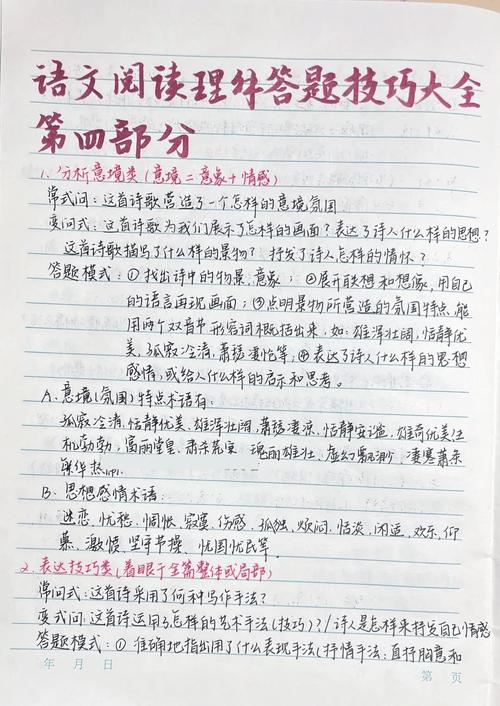 语文阅读理解答题技巧大全
第四部分
1. 分析意境类（意境=意象+情感）
常式问：这首诗歌营造了一个怎样的意境氛围
变问式：这首诗歌为我们展示了怎样的画面？表达了诗人什么样的思想？
这首诗歌描写了什么样的景物？抒发了诗人怎样的情怀？
答题模式：①找出诗中的物景，意象；②展开联想和想像，用自己
的语言再现画面；③点明景物所营造的氛围特点，能
用两个双音节形容词概括出来，如：雄浑壮阔，恬静优
美，孤寂冷清，萧瑟凄怆等，④表达了诗人什么样的思想
感情，或给人什么样的启示和思考。
A、意境（氛围）特点术语有：
孤寂冷清、恬静优美、雄浑壮阔、萧瑟凄凉、恬静安谧、雄奇优美、生
机勃勃，富丽堂皇、肃杀荒寒、瑰丽雄壮、虚幻飘渺、凄寒萧条
繁华热
B、思想感情术语：
迷恋、忧愁、惆怅、寂寞、伤感、孤独、烦闷、恬淡、闲适、欢乐、仰
慕、激愤、坚守节操、忧国忧民等
2. 表达技巧类（着眼于全篇整体或局部）
常问式：这首诗采用了何种写作手法？
变式问：这首诗运用了怎样的艺术手法（技巧）？/诗人是怎样来抒发自己情感
答题模式：①准确地指出用了什么表现手法（抒情手法：直抒胸意和
年 月 日 第 页